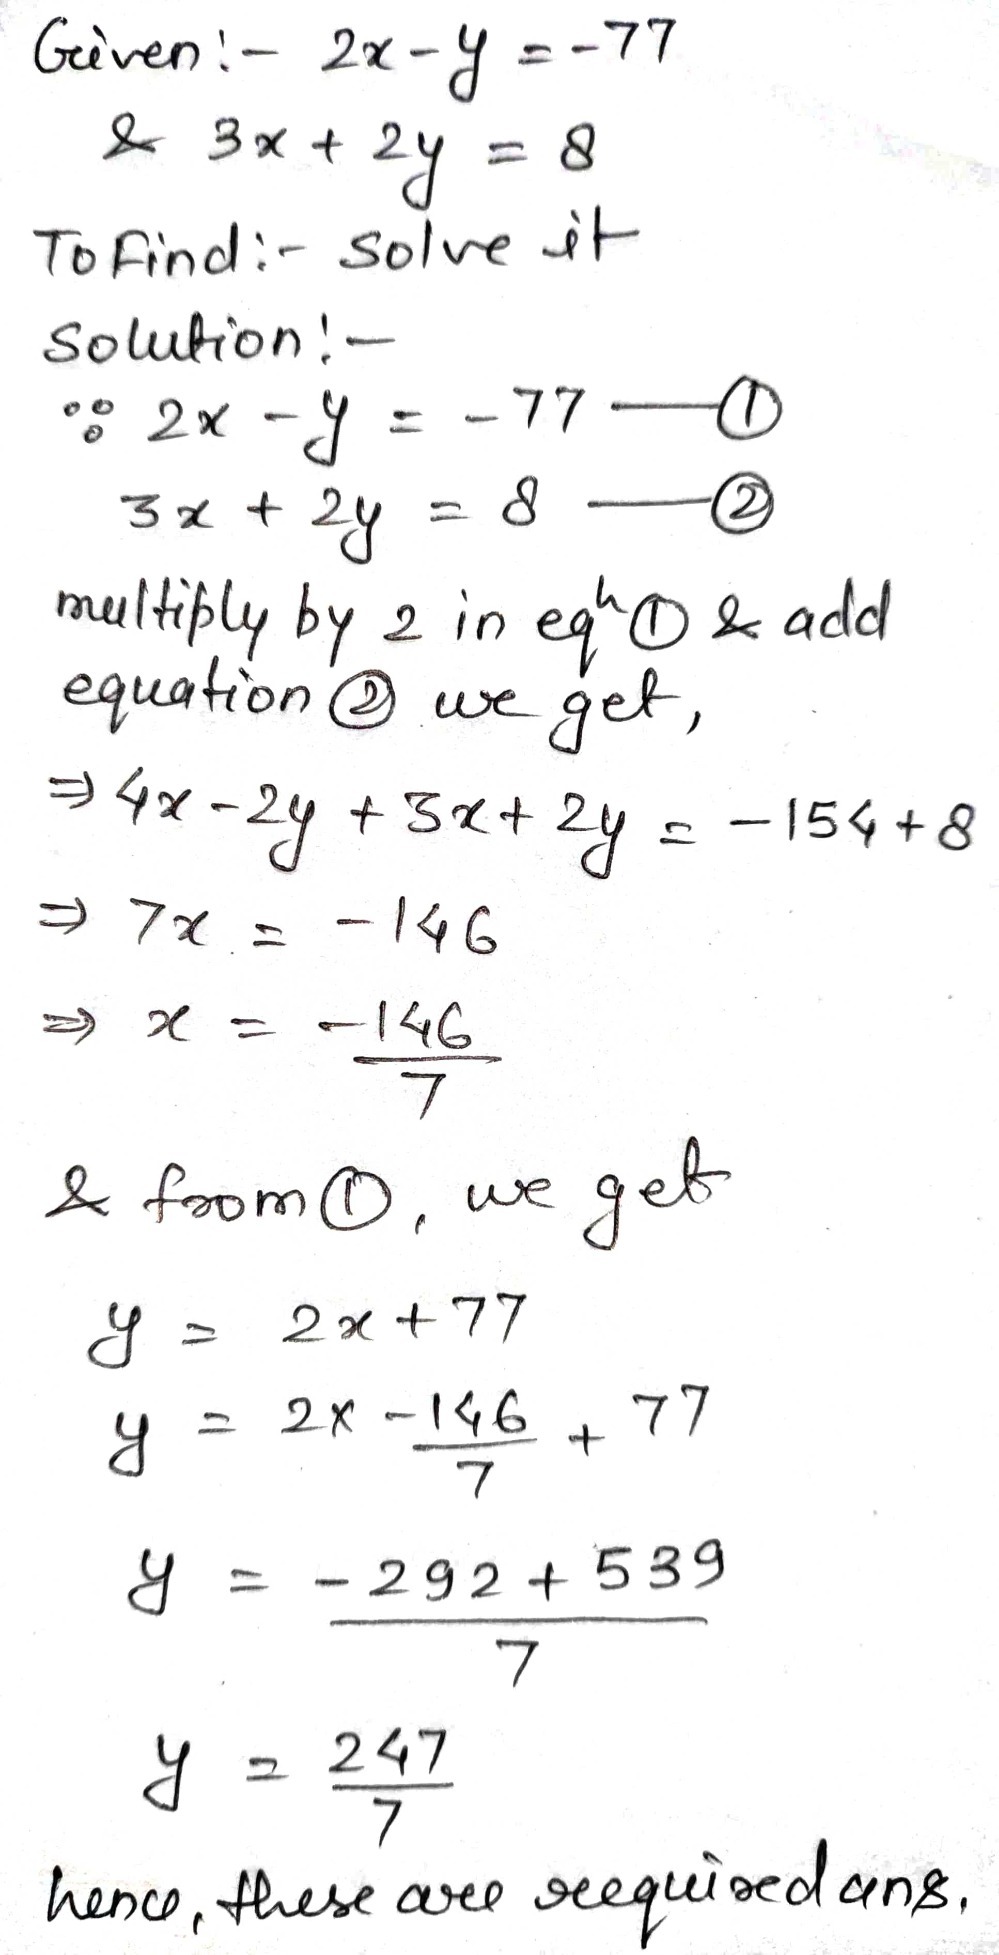 Given:- 2x-y = -77
& 3x + 2y = 8
To Find:- Solve it
Solution:-
∵ 2x - y = -77 —①
3x + 2y = 8 —②
multiply by 2 in eqⁿ ① & add
equation ② we get,
⇒ 4x-2y + 3x+2y = -154+8
⇒ 7x = -146
⇒ x = -146/7
& from ①, we get
y = 2x+77
y = 2x -146/7 + 77
y = -292 + 539/7
y = 247/7
hence, these are required ans.